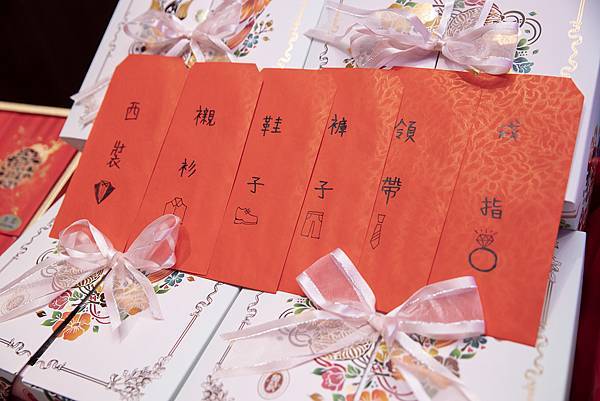 西裝
襯衫
鞋子
褲子
領帶
戒指